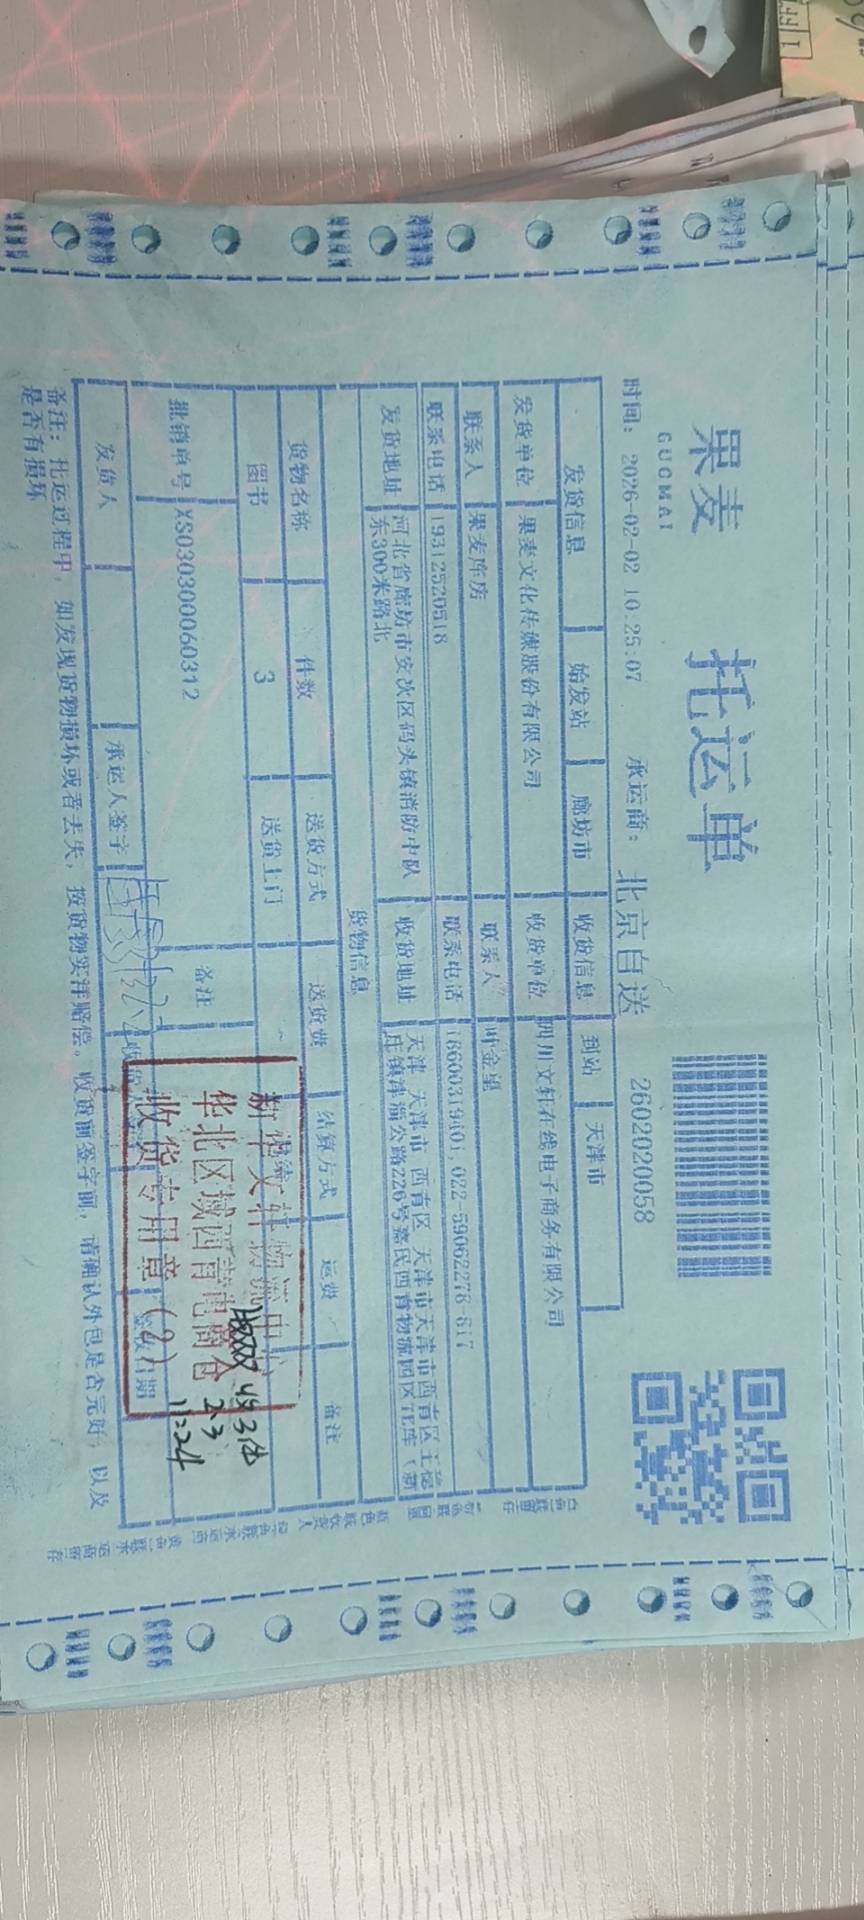 果麦 托运单
GUOMAI
时间: 2026-02-02 10:25:07 承运商: 北京自送 2602020058
发货信息 始发站 廊坊市 收货信息 到站 天津市
发货单位 果麦文化传媒股份有限公司 收货单位 四川文轩在线电子商务有限公司
联系人 果麦库房 联系人 叶金望
联系电话 19312520518 联系电话 18600319401,022-59062278-817
发货地址 河北省廊坊市安次区码头镇消防中队
东300米路北
收货地址 天津 天津市 西青区 天津市天津市西青区王稳
庄镇津淄公路226号嘉民西青物流园区
货物信息
货物名称 件数 送货方式 送货费 结算方式 运费 备注
图书 3 送货上门
批销单号 XS030300060312 备注
发货人 承运人签字 签收日期
备注: 托运过程中, 如发现货物损坏或者丢失, 按货物实洋赔偿。收货前签字前, 请确认外包是否完好, 以及
是否有损坏
新华文轩物流中心
华北区域西青电商仓
收货专用章(2)
收3件
2.3
11:24